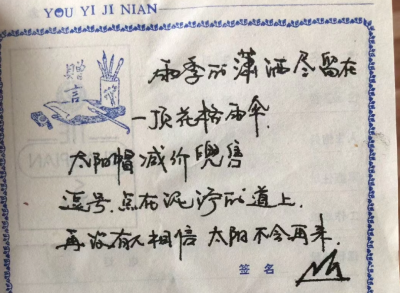 YOU YI JI NIAN
赠言
雨季的潇洒尽留在
一顶花格雨伞.
太阳帽减价兜售
逗号点在泥泞的道上.
再没有人相信 太阳不会再来.
签名